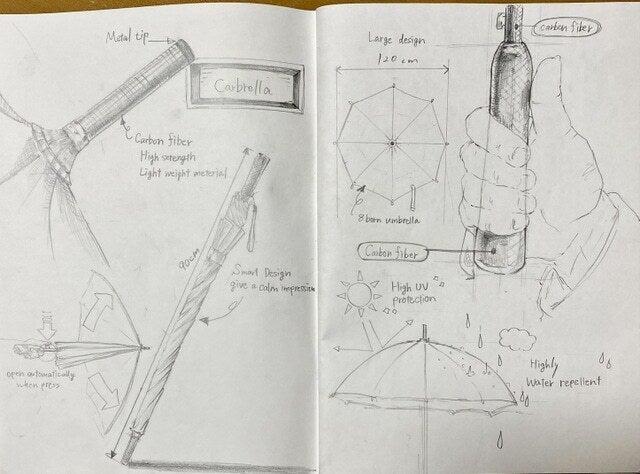 Metal tip
Carbrella
Carbon fiber
High strength
Light weight material
90cm
Smart Design
give a calm impression
open automatically
when press
Large design
120cm
8 born umbrella
carbon fiber
Carbon fiber
High UV
protection
Highly
Water repellent